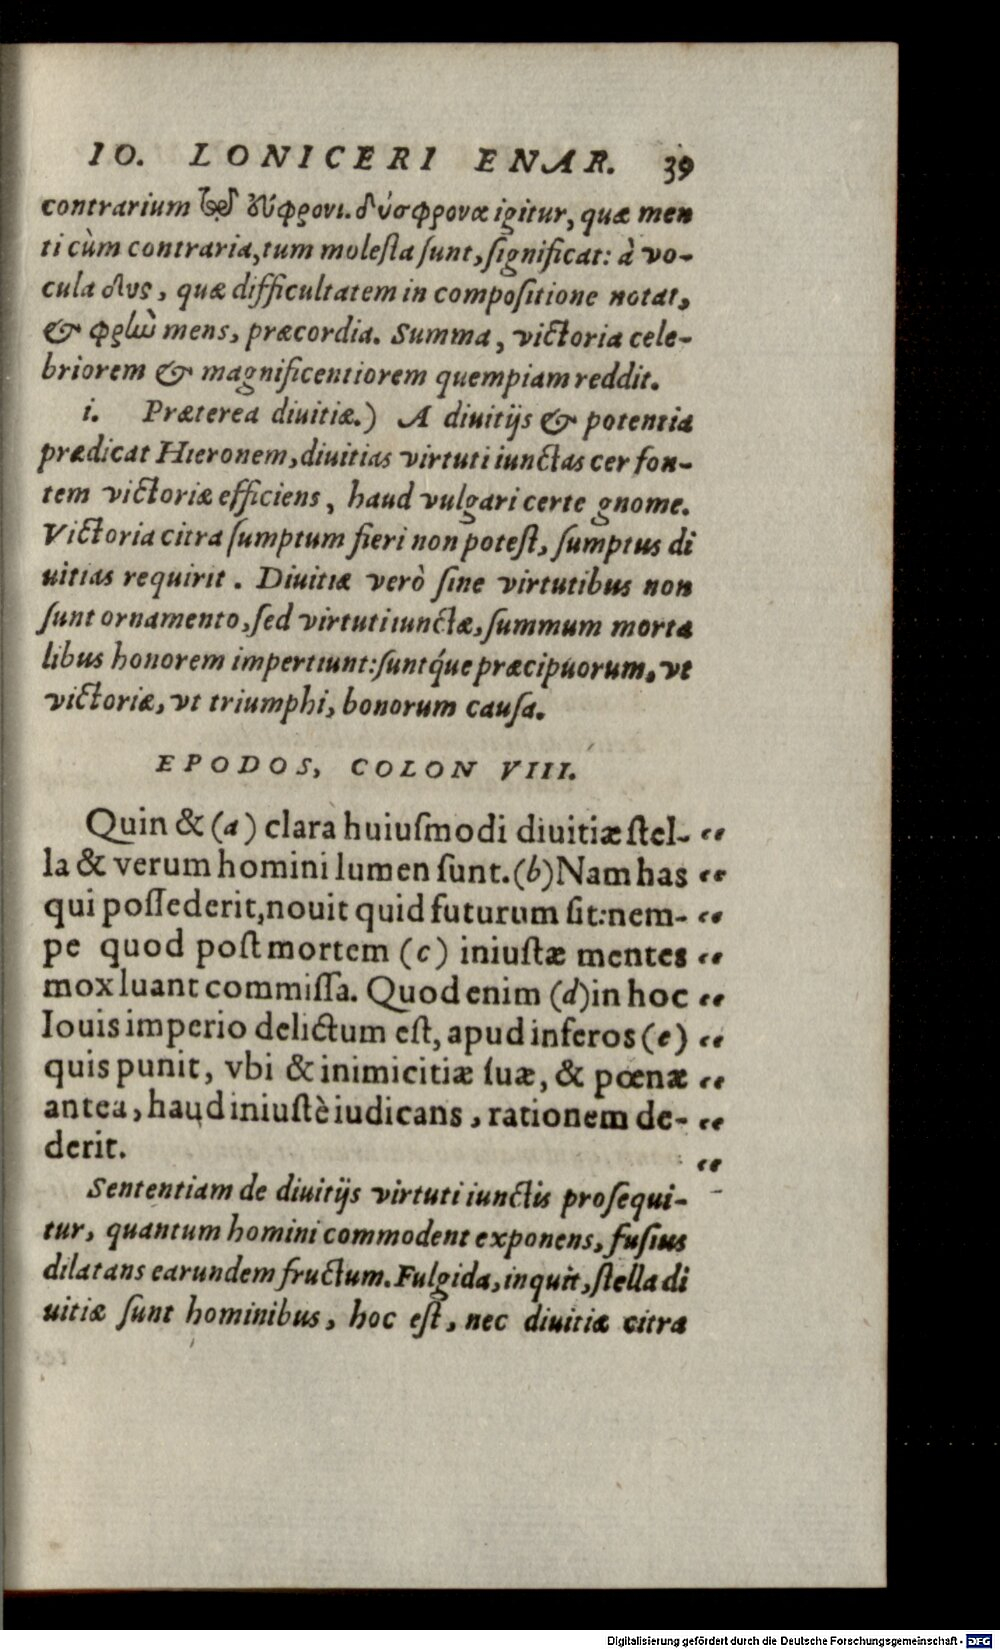 IO. LONICERI ENAR. 39
contrarium τῷ εὔφρονι. δύσφρονα igitur, quæ men
ti cùm contraria, tum molesta sunt, significat: à vo-
cula δυς, quæ difficultatem in compositione notat,
& φρὴν mens, præcordia. Summa, victoria cele-
briorem & magnificentiorem quempiam reddit.
i. Præterea diuitiæ.) A diuitijs & potentia
prædicat Hieronem, diuitias virtuti iunctas cer fon-
tem victoriæ efficiens, haud vulgari certe gnome.
Victoria citra sumptum fieri non potest, sumptus di
uitias requirit. Diuitiæ verò sine virtutibus non
sunt ornamento, sed virtuti iunctæ, summum morta
libus honorem impertiunt: suntq́ue præcipuorum, vt
victoriæ, vt triumphi, bonorum causa.
EPODOS, COLON VIII.
Quin & (a) clara huiusmodi diuitiæ stel- “
la & verum homini lumen sunt. (b) Nam has “
qui possederit, nouit quid futurum sit: nem- “
pe quod post mortem (c) iniustæ mentes “
mox luant commissa. Quod enim (d) in hoc “
Iouis imperio delictum est, apud inferos (e) “
quis punit, vbi & inimicitiæ suæ, & pœnæ “
antea, haud iniustè iudicans, rationem de- “
derit. “
Sententiam de diuitijs virtuti iunctis prosequi-
tur, quantum homini commodent exponens, fusius
dilatans earundem fructum. Fulgida, inquit, stella di
uitiæ sunt hominibus, hoc est, nec diuitiæ citra
Digitalisierung gefördert durch die Deutsche Forschungsgemeinschaft - DFG